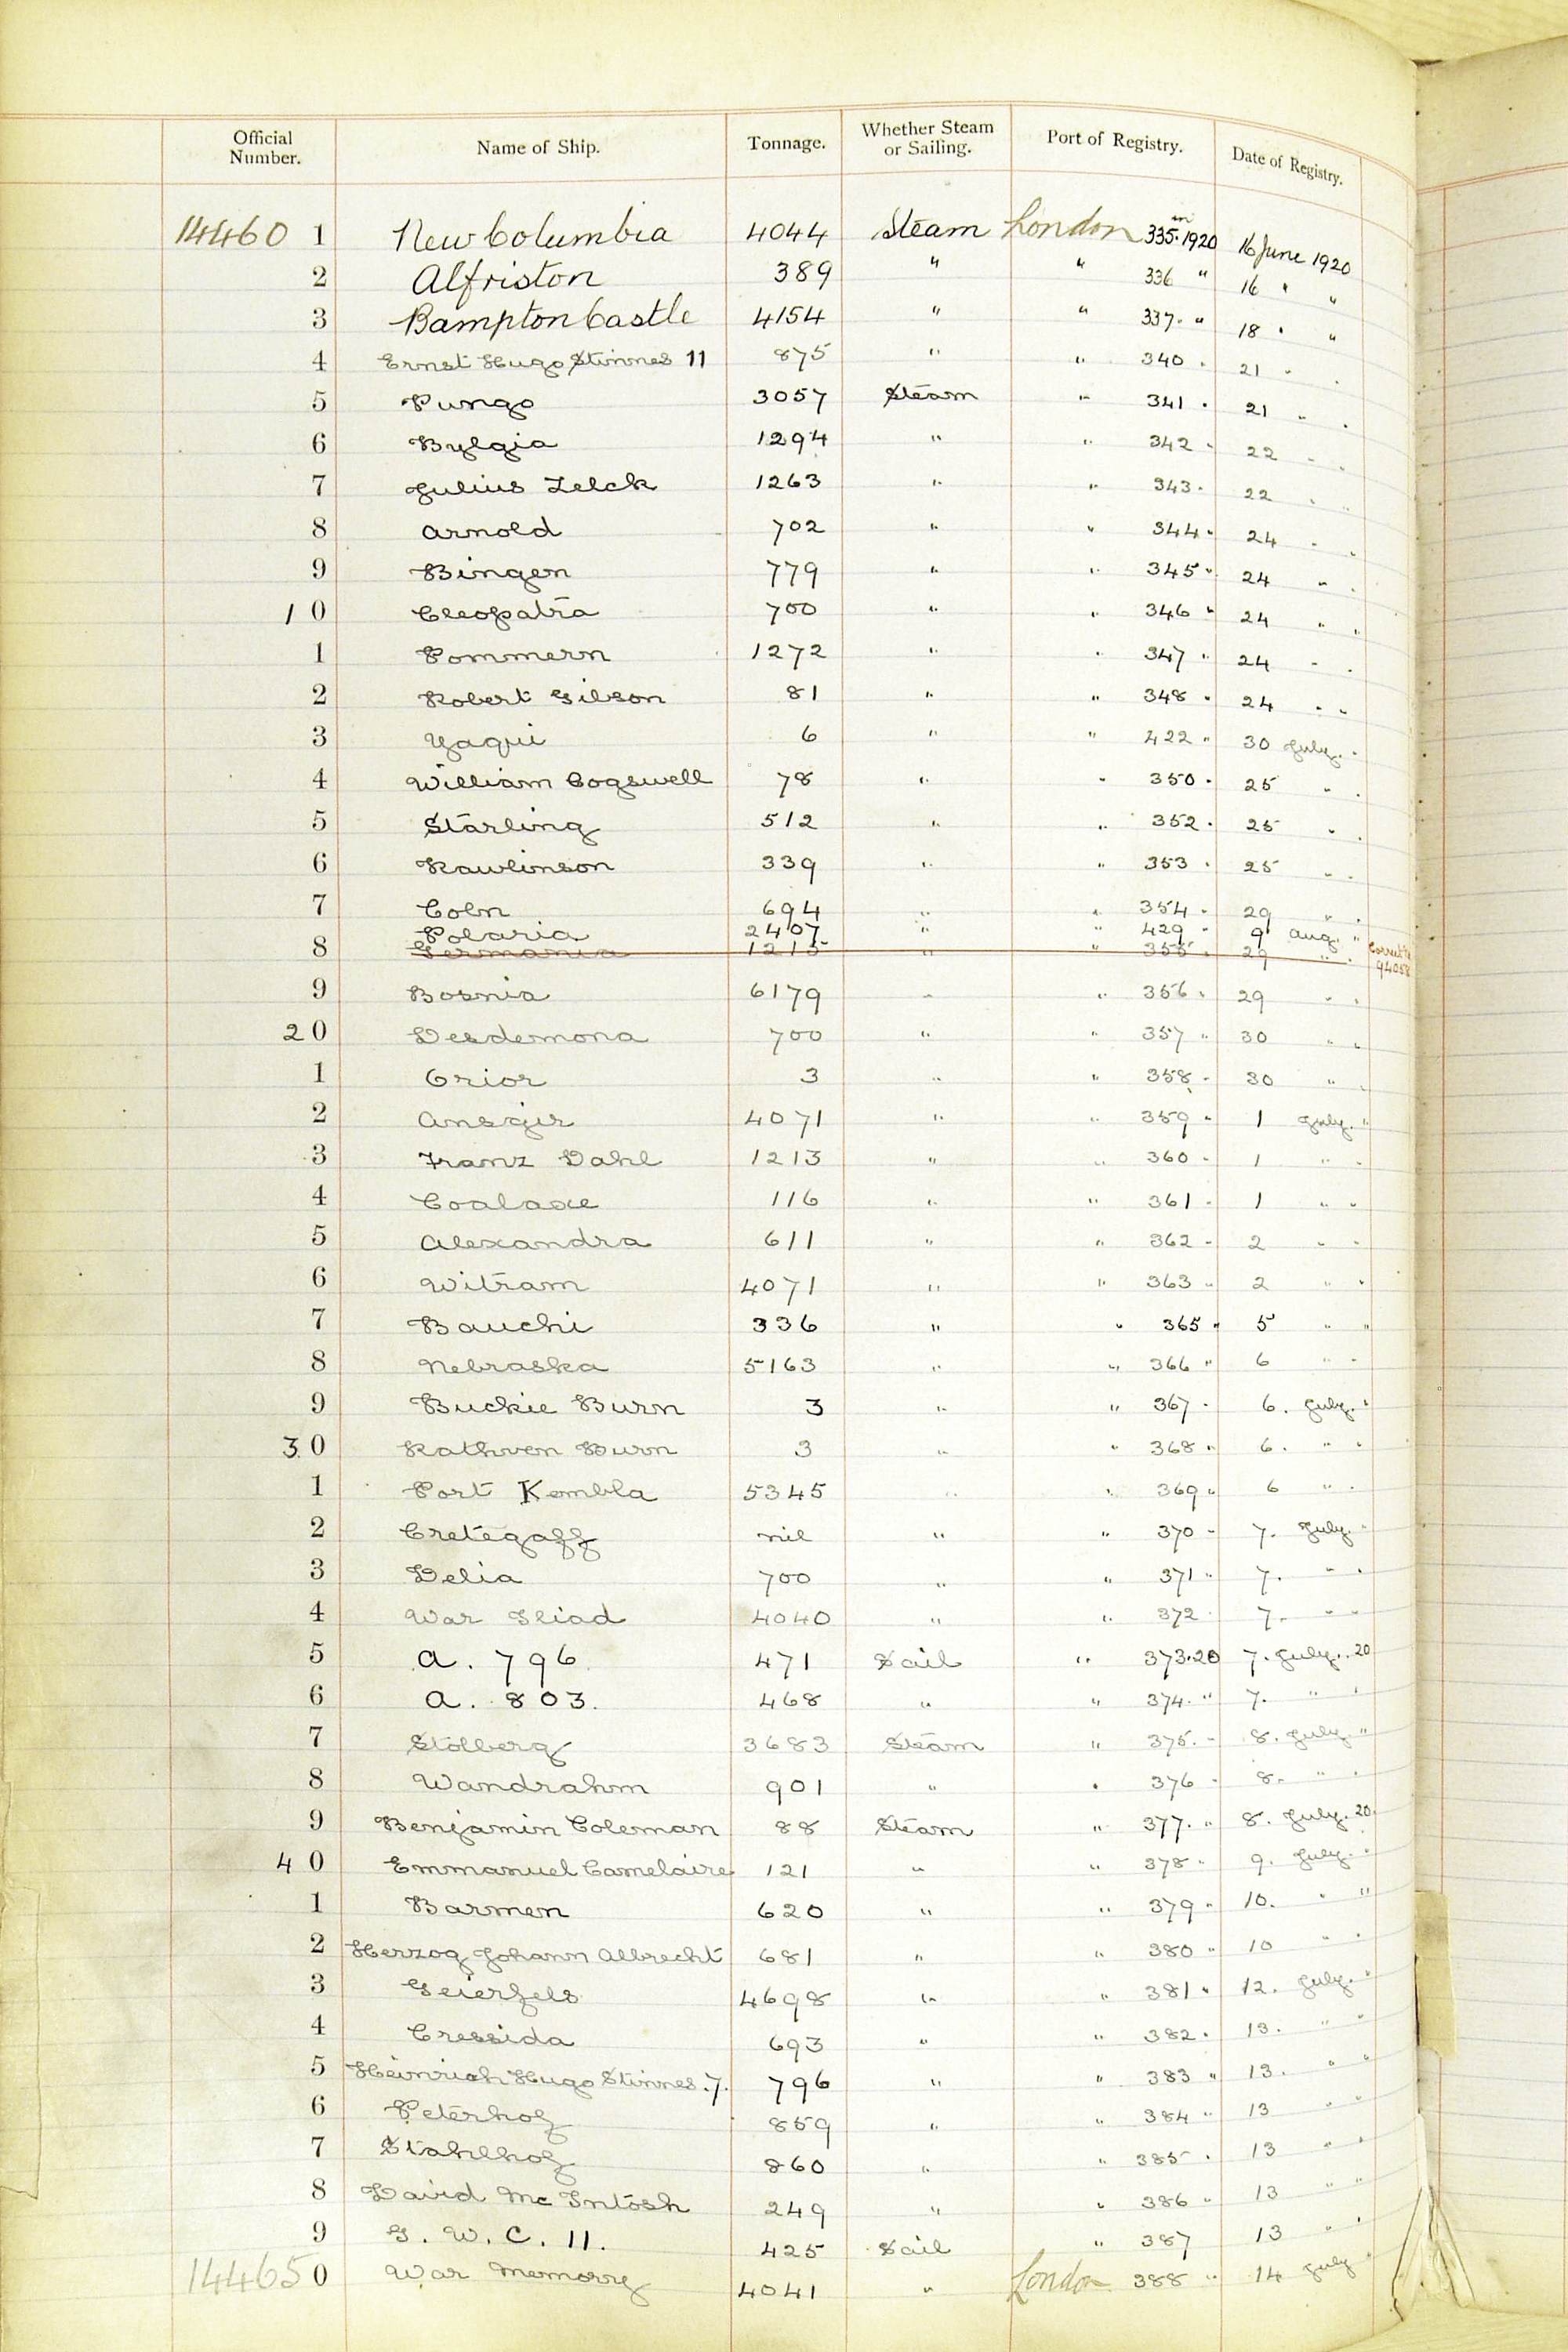 Official Number. Name of Ship. Tonnage. Whether Steam or Sailing. Port of Registry. Date of Registry.
14460 1 New Columbia 4044 Steam London 335 in 1920 16 June 1920
2 Alfriston 389 " " 336 " 16 " "
3 Bampton Castle 4154 " " 337 " 18 " "
4 Ernst Hugo Stinnes 11 875 " " 340 " 21 " "
5 Pungo 3057 Steam " 341 " 21 " "
6 Bylgia 1294 " " 342 " 22 " "
7 Julius Zelck 1263 " " 343 " 22 " "
8 Arnold 702 " " 344 " 24 " "
9 Bingen 779 " " 345 " 24 " "
10 Cleopatra 700 " " 346 " 24 " "
1 Pommern 1272 " " 347 " 24 " "
2 Robert Gilson 81 " " 348 " 24 " "
3 Yaqui 6 " " 422 " 30 July "
4 William Cogswell 78 " " 350 " 25 " "
5 Starling 512 " " 352 " 25 " "
6 Rawlinson 339 " " 353 " 25 " "
7 Coln 694 " " 354 " 29 " "
Polaria 2407 " " 429 " 9 Aug. "
8 Germania 1215 " " 355 " 29 " "
9 Bosnia 6179 " " 356 " 29 " "
20 Desdemona 700 " " 357 " 30 " "
1 Orior 3 " " 358 " 30 " "
2 Ansgir 4071 " " 359 " 1 July "
3 Franz Dahl 1213 " " 360 " 1 " "
4 Coalaxe 116 " " 361 " 1 " "
5 Alexandra 611 " " 362 " 2 " "
6 Witram 4071 " " 363 " 2 " "
7 Bauchi 336 " " 365 " 5 " "
8 Nebraska 5163 " " 366 " 6 " "
9 Buckie Burn 3 " " 367 " 6. July "
30 Rathven Burn 3 " " 368 " 6. " "
1 Port Kembla 5345 " " 369 " 6 " "
2 Cretegaff nil " " 370 " 7. July "
3 Delia 700 " " 371 " 7. " "
4 War Iliad 4040 " " 372 " 7. " "
5 A. 796 471 Sail " 373.20 7. July. 20
6 A. 803. 468 " " 374. " 7. " "
7 Stolberg 3683 Steam " 375. " 8. July "
8 Wandrahm 901 " " 376 " 8. " "
9 Benjamin Coleman 88 Steam " 377. " 8. July. 20
40 Emmanuel Camelaire 121 " " 378 " 9. July. "
1 Barmen 620 " " 379 " 10. " "
2 Herzog Johann Albrecht 681 " " 380 " 10 " "
3 Geierfels 4698 " " 381 " 12. July. "
4 Cressida 693 " " 382 " 13. " "
5 Heinrich Hugo Stinnes. 7. 796 " " 383 " 13. " "
6 Peterhof 859 " " 384 " 13 " "
7 Stahlhof 860 " " 385 " 13 " "
8 David Mc Intosh 249 " " 386 " 13 " "
9 G. W. C. 11. 425 Sail " 387 13 " "
144650 War Memory 4041 " London 388 " 14 July "